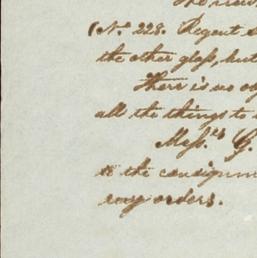 (No. 228. Regent
the other glass, but
There is no
all the things to
Mess.rs G.
to the consignm
my orders.